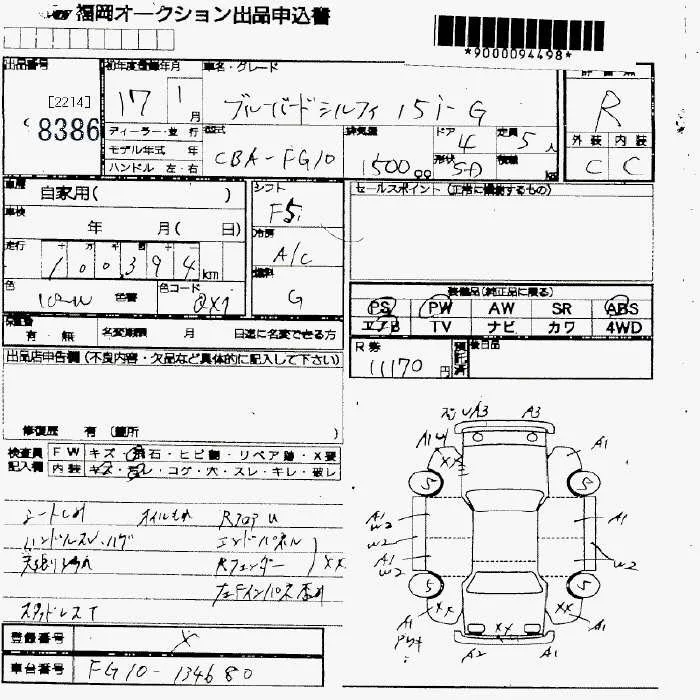 福岡オークション出品申込書
*9000094498*
出品番号 初年度登録年月 車名・グレード
[2214]
8386
17 1月 ブルーバードシルフィ 15i-G R
ディーラー・並行 型式 排気量 ドア 定員 外装 内装
モデル年式 年 CBA-FG10 1500cc 4 5人 C C
ハンドル 左・右 形状 SD 積載 kg
車歴 自家用( ) シフト F5 セールスポイント (正常に機能するもの)
車検 年 月( 日) 冷房 A/C
走行 100,394km 燃料 G
色 色番 色コード QX1
装備品(純正品に限る)
PS PW AW SR ABS
エアB TV ナビ カワ 4WD
保証書 有 無 名変期限 月 日迄に名変できる方
R券 11170円 預託済 後日品
出品店申告欄(不良内容・欠品など具体的に記入して下さい)
修復歴 有 (箇所 )
検査員 FW キズ・飛石・ヒビ割・リペア跡・X要
記入欄 内装 キズ・汚レ・コゲ・穴・スレ・キレ・破レ
オイルもれ Rフロア
ハンドルスレ・ハゲ エンドパネル
Rフェンダー XX
スタッドレスT
A3 A3
A1 XX A1
5 5
A1 W2 A1
W2 W2
A1 W2
5 5
XX XX
A1 XX A1
A2 A1
登録番号 X
車台番号 FG10-134680